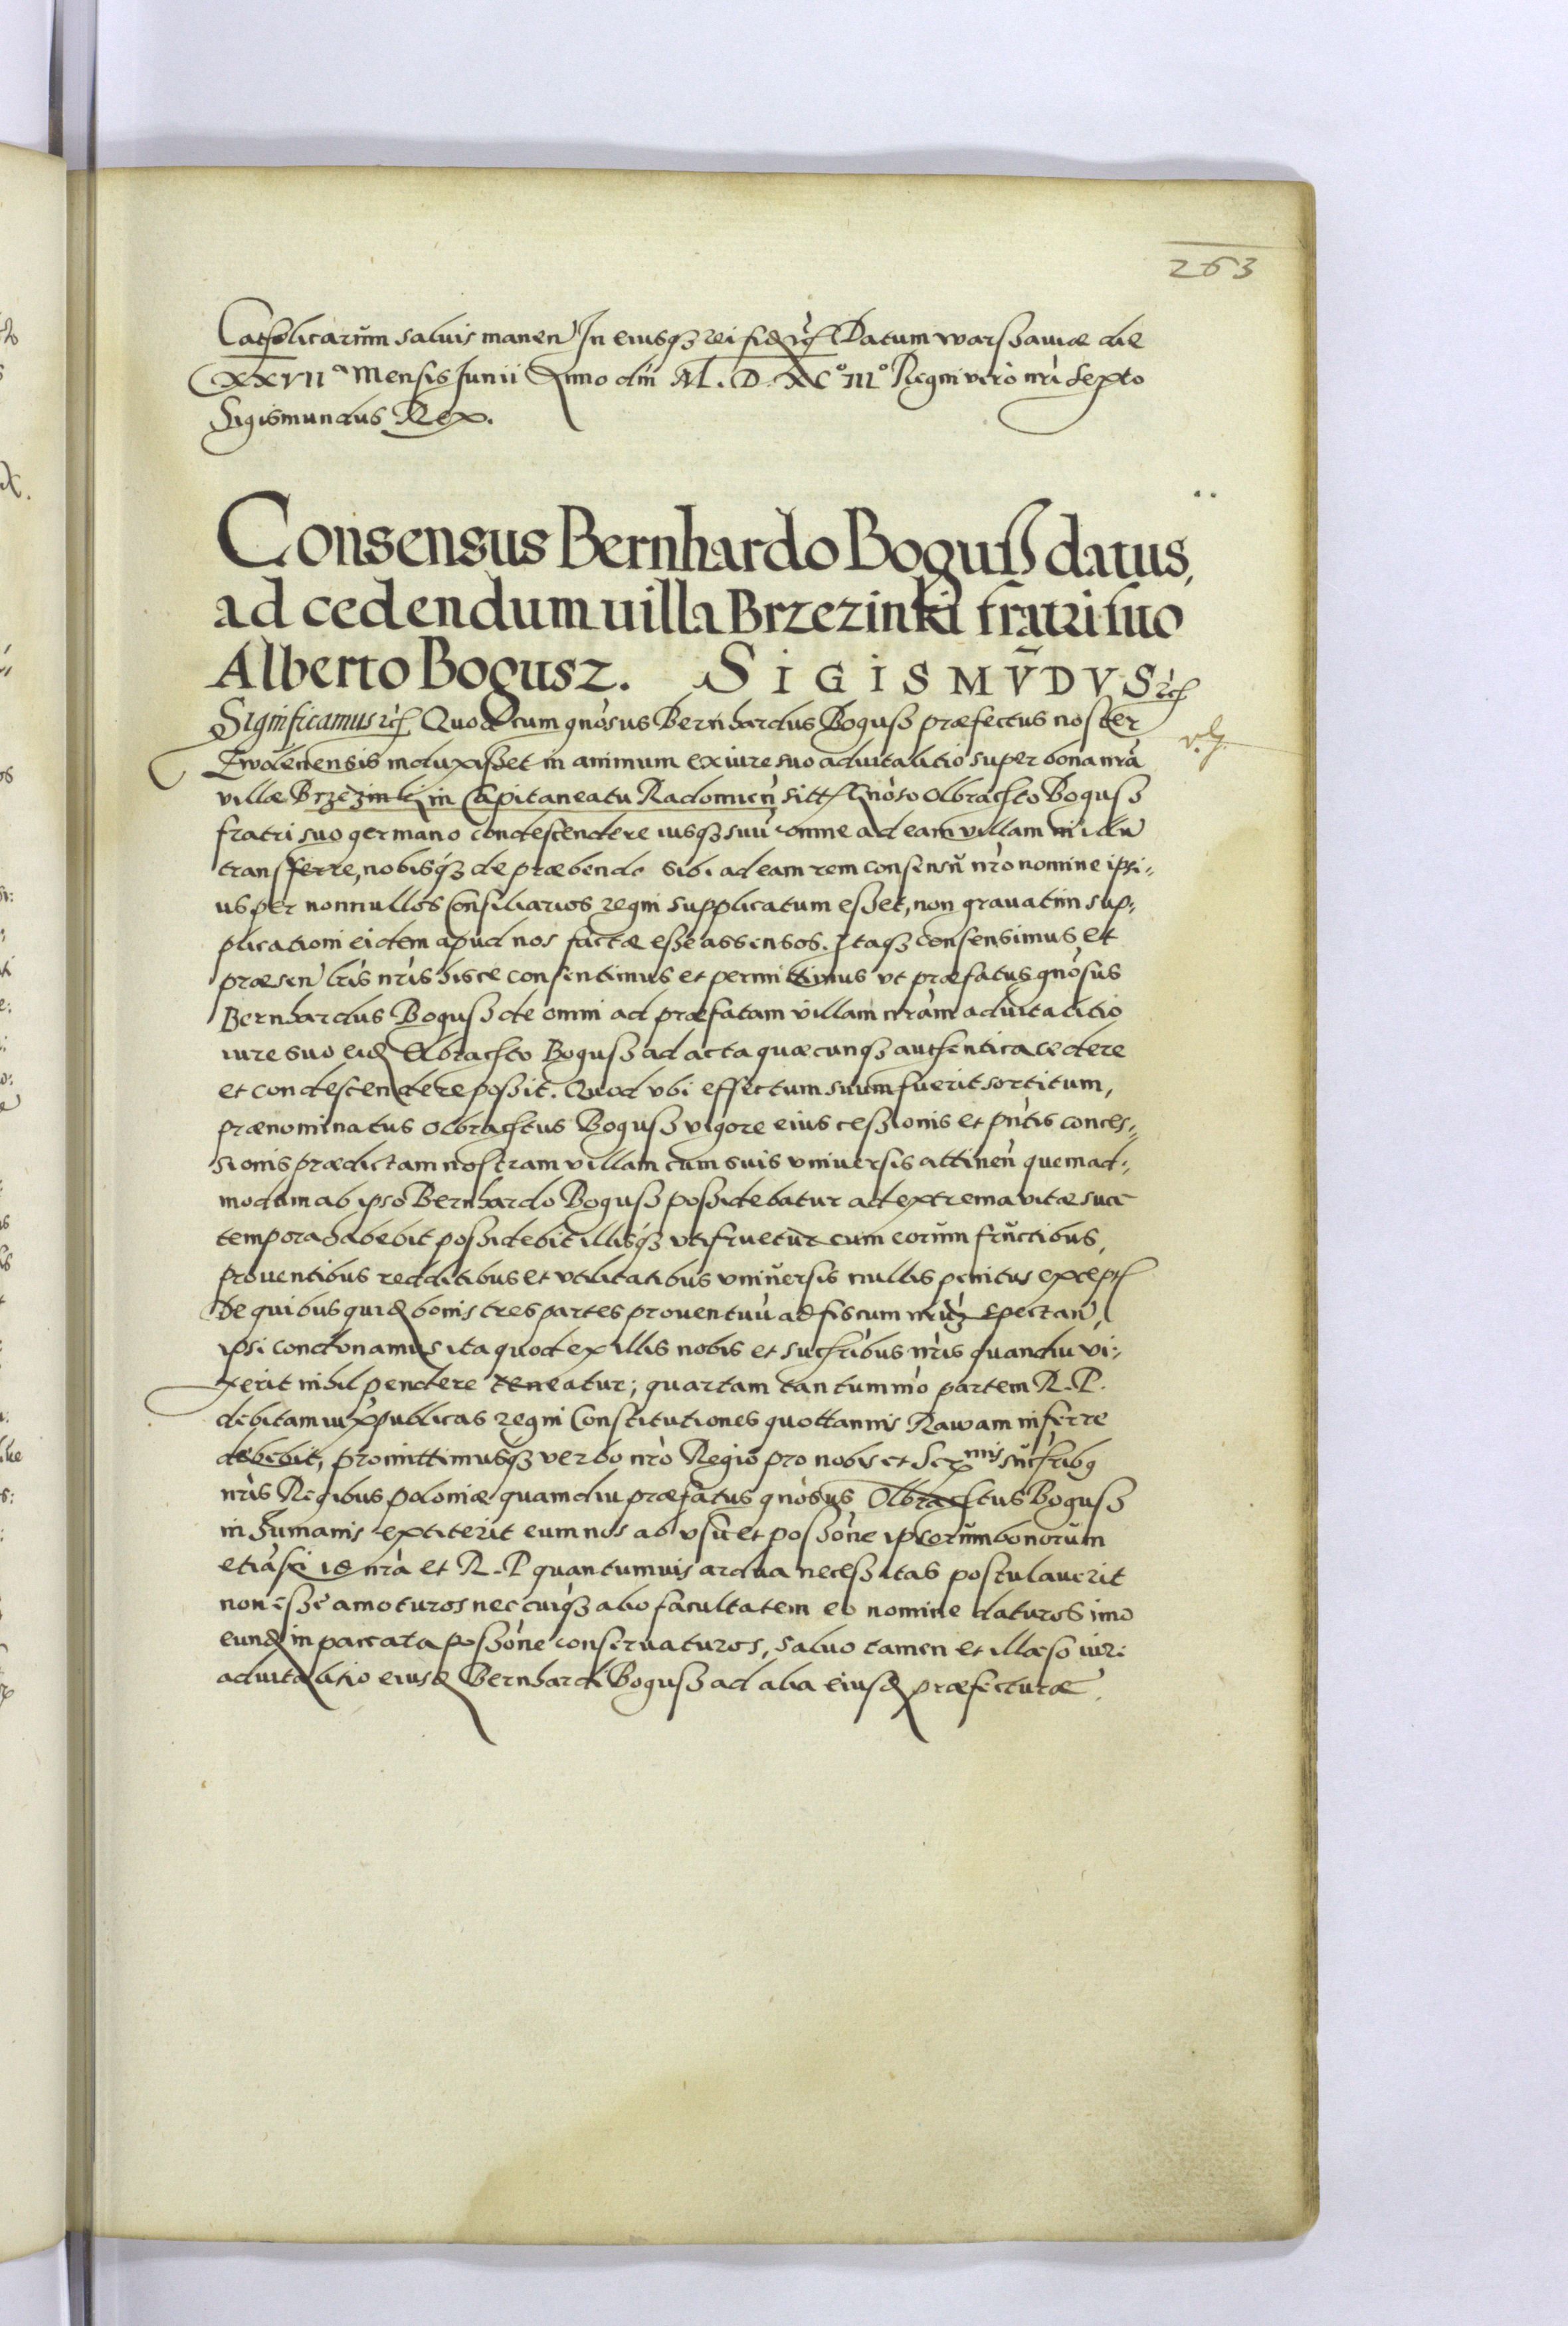 263
Catholicarum salvis manen̄ In eiusqȝ rei fidē ꝛc̄ Datum Warschaviæ die
XXVIIª Mensis Junii Anno dn̄i M.D.XC°III° Regni vero nr̄i Sexto
Sigismundus Rex.
Consensus Bernhardo Boguss datus,
ad cedendum uilla Brzezinki fr̄atri suo
Alberto Bogusz. SIGISMṼDVS ꝛc̄
Significamus ꝛc̄ Quod cum gn̄osus Bernhardus Bogusz præfectus noster
Zwolenensis induxisset in animum ex iure suo advitalitio super bona nr̄a
villæ Brzezinki in Capitaneatu Radomien̄ sitt Gn̄oso Olbrachto Bogusz
fratri suo germano condescendere iusqȝ suū omne ad eam villam in
transferre, nobisqȝ de præbendo sibi ad eam rem consensū nr̄o nomine ipsi-
us per nonnullos Consiliarios regni supplicatum esset, non gravatim sup-
plicationi eidem apud nos factæ esse assensos. Itaqȝ consensimus et
præsen̄ lr̄is nr̄is hisce consentimus et permittimus ut præfatus gn̄osus
Bernhardus Bogusz de omni ad præfatam villam nr̄am advitalitio
iure suo eid Olbrachto Bogusz ad acta quæcunqȝ authentica cedere
et condescendere possit. Quod ubi effectum suum fuerit sortitum,
prænominatus Olbrachtus Bogusz vigore eius cessionis et pn̄tis conces-
sionis prædictam nostram villam cum suis universis attinen̄ quemad-
modum ab ipso Bernhardo Bogusz possidebatur ad extrema vitæ suæ
tempora habebit possidebit illisqȝ utifruetur cum eorum fructibus,
proventibus redditibus et utilitatibus universis nullis penitus except
De quibus quid bonis tres partes proventuū ad fiscum nr̄um spectan̄,
ipsi condonamus ita quod ex illis nobis et sucr̄ibus nr̄is quandiu vi-
xerit nihil pendere teneatur; quartam tantummo partem R.P.
debitam iux publicas regni Constitutiones quottannis Rawam inferre
debebit, promittimusqȝ verbo nr̄o Regio pro nobis et Ser mis sucr̄ibq
nr̄is Regibus Poloniæ quamdiu præfatus gn̄osus Olbrachtus Bogusz
in humanis extiterit eum nos ab usu et poss̄one ipsorum bonorum
etiāsi id nr̄a et R.P quantumvis ardua necessitas postulaverit
non esse amoturos nec cuiqȝ alio facultatem eo nomine daturos imo
eund in paccata poss̄one conservaturos, salvo tamen et illæso iure
advitalitio eiusd Bernhardi Bogusz ad alia eiusd præfecturæ